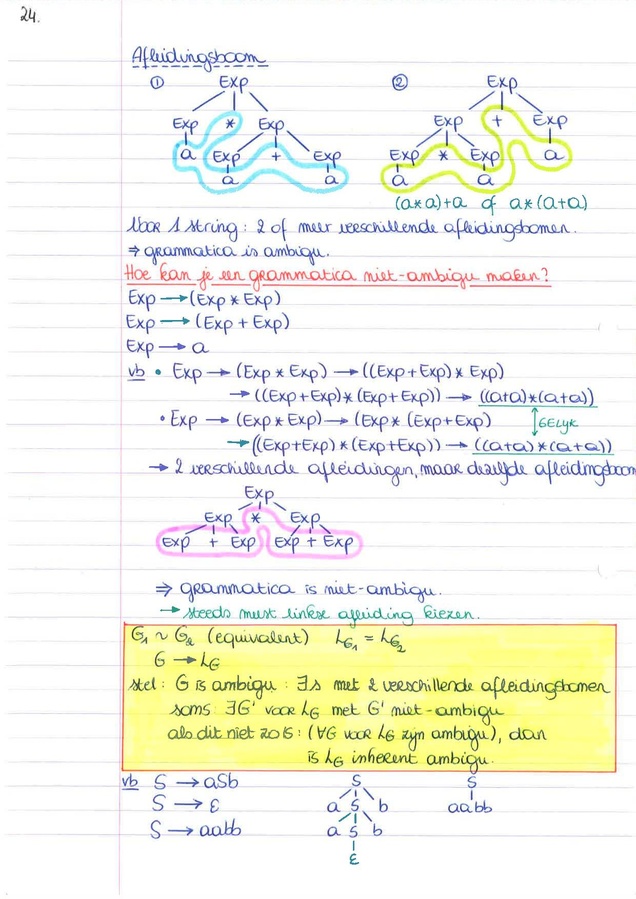 24.
Afleidingsboom
① Exp ② Exp
Exp * Exp Exp + Exp
a Exp + Exp Exp * Exp a
a a a a
(a*a)+a of a*(a+a)
Voor 1 string: 2 of meer verschillende afleidingsbomen.
⇒ grammatica is ambigu.
Hoe kan je een grammatica niet-ambigu maken?
Exp → (Exp * Exp)
Exp → (Exp + Exp)
Exp → a
vb • Exp → (Exp * Exp) → ((Exp+Exp) * Exp)
→ ((Exp+Exp)*(Exp+Exp)) → ((a+a)*(a+a))
• Exp → (Exp * Exp) → (Exp * (Exp+Exp)) ↕ GELIJK
→ ((Exp+Exp)*(Exp+Exp)) → ((a+a)*(a+a))
→ 2 verschillende afleidingen, maar dezelfde afleidingsboom
Exp
Exp * Exp
Exp + Exp Exp + Exp
⇒ grammatica is niet-ambigu.
→ steeds meest linkse afleiding kiezen.
G₁ ~ G₂ (equivalent) L_G₁ = L_G₂
G → L_G
stel: G is ambigu: ∃s met 2 verschillende afleidingsbomen
soms: ∃G' voor L_G met G' niet-ambigu
als dit niet zo is: (∀G voor L_G zijn ambigu), dan
is L_G inherent ambigu.
vb S → aSb S S
S → ε a S b aabb
S → aabb a S b
ε